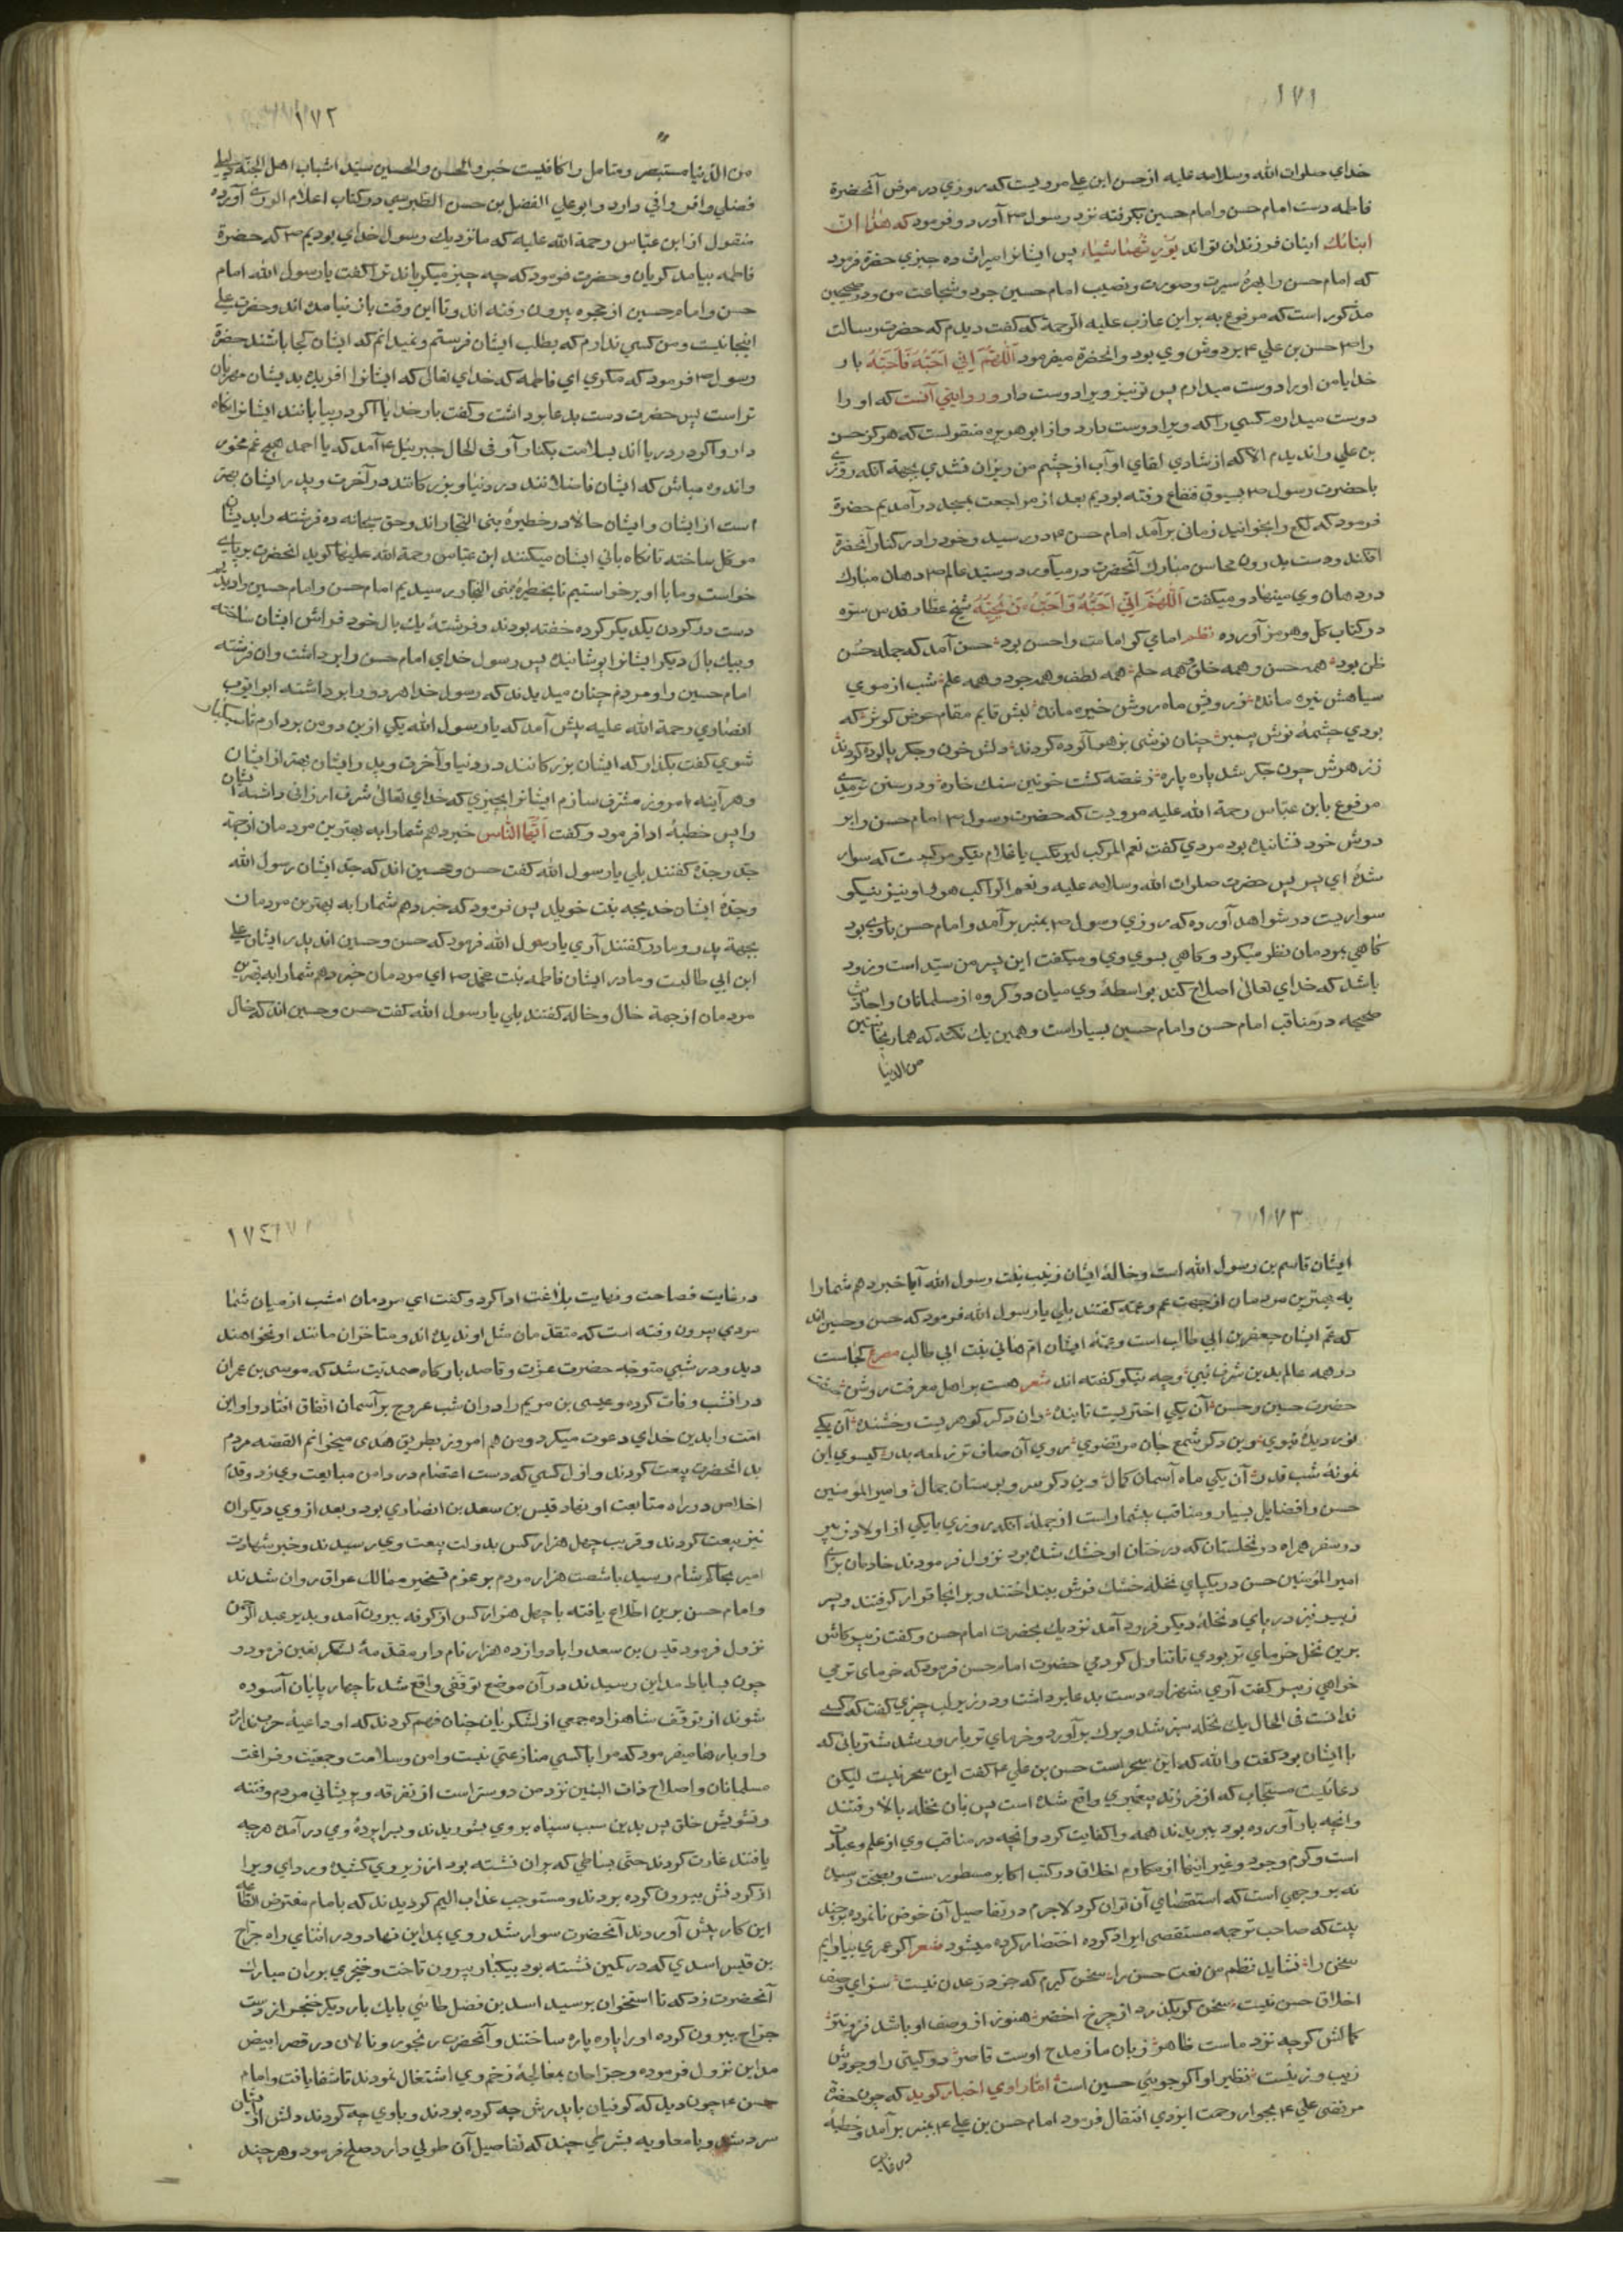 ١٧١
خدای صلوات الله وسلامه علیه از حسن ابن علی مرویست که روزی در مرض آنحضرة
فاطمه دست امام حسن و امام حسین بگرفته نزد رسول ص آورد و فرمود که هذا ان
ابناك اینان فرزندان تواند پس ایشانرا میراث ده چیزی حضرة فرمود
که امام حسن را بهرهٔ سیرت و صورت و نصیب امام حسین جود و شجاعت من و در صحیحین
مذکور است که مرفوع به براین عازب علیه الرحمة که گفت دیدم که حضرت رسالت
را ص حسن بن علی ع بر دوش وی بود و انحضرة میفرمود اللهم انی احبه فاحبه بار
خدایا من اورا دوست میدارم پس تو نیز ویرا دوست دار و در روایتی آنست که او را
دوست میدارم کسی را که ویرا دوست دارد و از ابو هریره منقولست که هرگز حسن
بن علی را ندیدم الا که از شادی لقای او آب از چشم من ریزان نشدی بجهة آنکه روزی
با حضرت رسول ص بسوق رفته بودیم بعد از مراجعت بمسجد در آمدیم حضرة
فرمود که لکع را بخوانید زمانی برآمد امام حسن ع در رسید و خود را در کنار آنحضرة
افکند و دست بدرون محاسن مبارك آنحضرت در میآورد و سید عالم ص دهان مبارك
در دهان وی مینهاد و میگفت اللهم انی احبه و احب من یحبه شیخ عطار قدس سره
در کتاب کل و هرمز آورده نظم امامی کو امامت را حسن بود حسن آمد که جمله حسن
ظن بود همه حسن و همه خلق و همه حلم همه لطف و همه جود و همه علم شب از موی
سیاهش تیره مانده ز رویش ماه روشن خیره مانده لبش قایم مقام حوض کوثر که
بودی چشمهٔ نوش پیمبر چنان نوشی بزهر آلوده کردند دلش خون و جگر پالوده کردند
ز زهرش چون جگر شد پاره پاره ز غصه گشت خونین سنك خاره و در سنن ترمدی
مرفوع بابن عباس رحمة الله علیه مرویست که حضرت رسول ص امام حسن را بر
دوش خود نشانیده بود مردی گفت نعم المرکب رکبت یا غلام نیکو مرکبیست که سوار
شدهٔ ای پسر پس حضرت صلوات الله وسلامه علیه و نعم الراکب هو او نیز نیکو
سواریست در شواهد آورده که روزی رسول ص بمنبر برآمد و امام حسن باوی بود
گاهی بمردمان نظر میکرد و گاهی بسوی وی و میگفت این پسر من سید است و زود
باشد که خدای تعالی اصلاح کند بواسطهٔ وی میان دو گروه از مسلمانان و احادیث
صحیحه در مناقب امام حسن و امام حسین بسیار است و همین یك نکته که هما ریحانتین
من الدنیا
١٧٢
من الدنیا مستبصر و متامل را کافیست خبر و الحسن والحسین سید اشباب اهل الجنة دلیلی
فضلی وافر وافی دارد و ابو علی الفضل بن حسن الطبرسی در کتاب اعلام الوری آورده
منقول از ابن عباس رحمة الله علیه که ما نزدیك رسول خدای بودیم ص که حضرة
فاطمه بیامد گریان و حضرت فرمود که چه چیز میگریاند ترا گفت یا رسول الله امام
حسن و امام حسین از حجره بیرون رفته اند و تا این وقت باز نیامده اند و حضرت علی
اینجا نیست و من کسی ندارم که بطلب ایشان فرستم و نمیدانم که ایشان کجا باشند حضرة
رسول ص فرمود که مگری ای فاطمه که خدای تعالی که ایشانرا افریده بدیشان مهربان
تر است پس حضرت دست بدعا برداشت و گفت بار خدایا اگر در بیابانند ایشانرا نگاه
دار و اگر در دریا اند بسلامت بکنار آر فی الحال جبرییل ع آمد که یا احمد هیچ غم مخور
و اندوه مباش که ایشان فاضلانند در دنیا و بزرگانند در آخرت و پدر ایشان بهتر
است از ایشان و ایشان حالا در خطیرهٔ بنی النجار اند و حق سبحانه دو فرشته را بدیشان
موکل ساخته تا نگاه بانی ایشان میکنند ابن عباس رحمة الله علیهما گوید انحضرت بر پای
خواست و ما با او برخواستیم تا بخطیرهٔ بنی النجار رسیدیم امام حسن و امام حسین را دیدیم
دست در گردن یکدیگر کرده خفته بودند و فرشتهٔ یك بال خود فراش ایشان ساخته
و بیك بال دیگر ایشانرا پوشانیده پس رسول خدای امام حسن را برداشت و ان فرشته
امام حسین را و مردم چنان میدیدند که رسول خدا هر دو را برداشته ابو ایوب
انصاری رحمة الله علیه پیش آمد که یا رسول الله یکی از ین دو من بردارم تا سبکبار
شوی گفت بگذار که ایشان بزرگانند در دنیا و آخرت و پدر ایشان بهتر از ایشان
و هر آینه امروز مشرف سازم ایشانرا بچیزی که خدای تعالی شرف ارزانی داشته
و اپس خطبهٔ ادا فرمود و گفت ایها الناس خبر دهم شما را به بهترین مردمان از جهة
جد و جده گفتند بلی یا رسول الله گفت حسن و حسین اند که جد ایشان رسول الله
و جدهٔ ایشان خدیجه بنت خویلد پس فرمود که خبر دهم شما را به بهترین مردمان
بجهة پدر و مادر گفتند آری یا رسول الله فرمود که حسن و حسین اند پدر ایشان علی
ابن ابی طالبست و مادر ایشان فاطمه بنت محمد ص ای مردمان خبر دهم شما را به بهترین
مردمان از جهة خال و خاله گفتند بلی یا رسول الله گفت حسن و حسین اند که خال
١٧٣
ایشان قاسم بن رسول الله است و خالهٔ ایشان زینب بنت رسول الله آیا خبر دهم شما را
به بهترین مردمان از جهت عم و عمه گفتند بلی یا رسول الله فرمود که حسن و حسین اند
که عم ایشان جعفر بن ابی طالب است و عمهٔ ایشان ام هانی بنت ابی طالب مصرع کجاست
در همه عالم بدین شرف نسبی و چه نیکو گفته اند شعر هست بر اهل معرفت روشن
حضرت حسین و حسن آن یکی اختریست تابنده وان دگر گوهریست رخشنده آن یکی
نور دیدهٔ نبوی وین دگر شمع جان مرتضوی روی آن صاف تر ز لمعه بدر گیسوی این
نمونهٔ شب قدر آن یکی ماه آسمان کمال وین دگر سرو بوستان جمال و امیر المؤمنین
حسن را فضایل بسیار و مناقب بیشمار است از جمله آنکه روزی با یکی از اولاد زبیر
در سفر همراه در نخلستان که درختان او خشك شده بود نزول فرمودند خادمان برای
امیر المؤمنین حسن در یکپای نخله خشك فرش بینداختند و بر انجا قرار گرفتند و پسر
زبیر نیز در پای نخلهٔ دیگر فرود آمد نزدیك بحضرت امام حسن و گفت زبیر کاش
برین نخل خرمای تر بودی تا تناول کردمی حضرت امام حسن فرمود که خرمای تر می
خواهی زبیر گفت آری شهزاده دست بدعا برداشت و در زیر لب چیزی گفت که کسی
ندانست فی الحال یك نخله سبز شد و برك برآورد و خرمای تر بارور شد شتربانی که
با ایشان بود گفت و الله که این سحر است حسن بن علی ع گفت این سحر نیست لیکن
دعائیست مستجاب که از فرزند پیغمبری واقع شده است پس بان نخله بالا رفتند
و انچه بار آورده بود ببریدند همه را کفایت کرد و انچه در مناقب وی از علم و عبادت
است و کرم و جود و غیر اینها از مکارم اخلاق در کتب اکابر مسطور ست و بصحت رسیده
نه بر وجهی است که استقصای آن توان کرد لاجرم در تفاصیل آن خوض نانموده بر چند
بیت که صاحب ترجمه مستقصی ایراد کرده اختصار کرده میشود شعر اگر عمری بیارایم
سخن را نشاید نظم من نعت حسن را سخن گیرم که جز در عدن نیست سزای وصف
اخلاق حسن نیست سخن گر بگذرد از چرخ اخضر هنوز از وصف او باشد فروتر
کمالش گرچه نزد ماست ظاهر زبان ما ز مدح اوست قاصر دو گیتی را وجودش
زیب و زینست نظیر او اگر جویی حسین است اما راوی اخبار گوید که چون حضرة
مرتضی علی ع بجوار رحمت ایزدی انتقال فرمود امام حسن بن علی ع بمنبر برآمد و خطبهٔ
در غایت
١٧٤
در غایت فصاحت و نهایت بلاغت ادا کرد و گفت ای مردمان امشب از میان شما
مردی بیرون رفته است که متقدمان مثل او ندیده اند و متاخران مانند او نخواهند
دید و در شبی متوجه حضرت عزت و قاصد بارگاه صمدیت شد که موسی بن عمران
در انشب وفات کرده و عیسی بن مریم را در ان شب عروج بر آسمان اتفاق افتاد و او این
امت را بدین خدای دعوت میکرد و من هم امروز بطریق هدی میخوانم القصه مردم
بد انحضرت بیعت کردند و اول کسی که دست اعتصام در دامن مبایعت وی زد و قدم
اخلاص در راه متابعت او نهاد قیس بن سعد بن انصاری بود و بعد از وی دیگران
نیز بیعت کردند و قریب چهل هزار کس بدولت بیعت وی رسیدند و خبر شهادت
امیر بحاکم شام رسید با شصت هزار مردم بر عزم تسخیر ممالك عراق روان شدند
و امام حسن برین اطلاع یافته با چهل هزار کس از کوفه بیرون آمد و بدیر عبد الرحمن
نزول فرمود قیس بن سعد را با دوازده هزار نام دار مقدمهٔ لشکر تعین فرمود و
چون بساباط مداین رسیدند در آن موضع توقفی واقع شد تا چهار پایان آسوده
شوند از توقف شاهزاده جمعی از لشکریان چنان فهم کردند که او داعیهٔ حرب ندارد
و او بارها میفرمود که مرا با کسی منازعتی نیست و امن و سلامت و جمعیت و فراغت
مسلمانان و اصلاح ذات البین نزد من دوستر است از تفرقه و پریشانی مردم و فتنه
و تشویش خلق پس بدین سبب سپاه بر وی بشوریدند و بسراپردهٔ وی در آمده هرچه
یافتند غارت کردند حتی بساطی که بران نشسته بود از زیر وی کشیده و ردای ویرا
از گردنش بیرون کرده بودند و مستوجب عذاب الیم گردیدند که با امام مفترض الطاعه
این کار پیش آوردند آنحضرت سوار شد روی بمداین نهاد و در اثنای راه جراح
بن قیس اسدی که در کمین نشسته بود بیکبار بیرون تاخت و خنجری بر ران مبارك
آنحضرت زد که تا استخوان برسید اسد بن فضل طائی با یك یار دیگر خنجر از دست
جراح بیرون کرده او را پاره پاره ساختند و آنحضرت رنجور و نالان در قصر ابیض
مداین نزول فرموده و جراحان بمعالجهٔ زخم وی اشتغال نمودند تا شفا یافت و امام
حسن ع چون دید که کوفیان با پدرش چه کرده بودند و با وی چه کردند دلش از ایشان
سرد شد و با معاویه بشرطی چند که تفاصیل آن طولی دارد صلح فرمود و هرچند